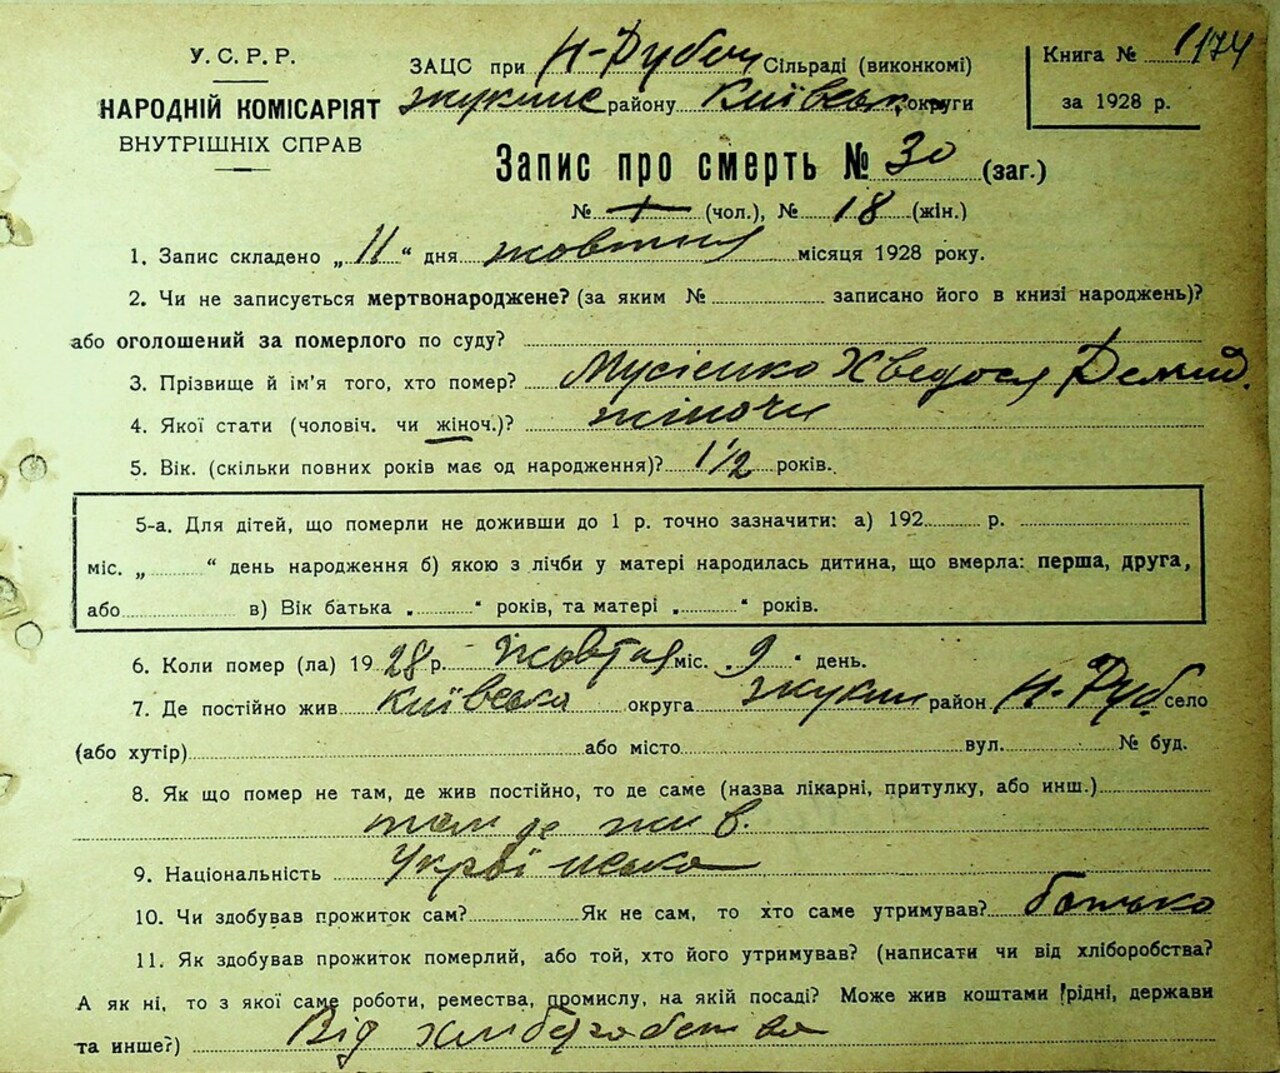 У. С. Р. Р.
НАРОДНІЙ КОМІСАРІЯТ
ВНУТРІШНІХ СПРАВ
ЗАЦС при Н-Дубеч Сільраді (виконкомі)
жукинс району Київськ. округи
Книга № 1174
за 1928 р.
Запис про смерть № 30 (заг.)
№ (чол.), № 18 (жін.)
1. Запис складено „ 11 “ дня жовтня місяця 1928 року.
2. Чи не записується мертвонароджене? (за яким № записано його в книзі народжень)?
або оголошений за померлого по суду?
3. Прізвище й ім'я того, хто помер? Мусієнко Хведося Демид.
4. Якої стати (чоловіч. чи жіноч.)? жіночи
5. Вік. (скільки повних років має од народження)? 1/2 років.
5-а. Для дітей, що померли не доживши до 1 р. точно зазначити: а) 192 р.
міс. „ “ день народження б) якою з лічби у матері народилась дитина, що вмерла: перша, друга,
або в) Вік батька „ “ років, та матері „ “ років.
6. Коли помер (ла) 1928 р. Жовтня міс. „ 9 “ день.
7. Де постійно жив Київська округа жукин район Н-Дуб. село
(або хутір) або місто вул. № буд.
8. Як що помер не там, де жив постійно, то де саме (назва лікарні, притулку, або инш.)
там де жив.
9. Національність Українська
10. Чи здобував прожиток сам? Як не сам, то хто саме утримував? батько
11. Як здобував прожиток померлий, або той, хто його утримував? (написати чи від хліборобства?
А як ні, то з якої саме роботи, ремества, промислу, на якій посаді? Може жив коштами рідні, держави
та инше?) Від хліборобства